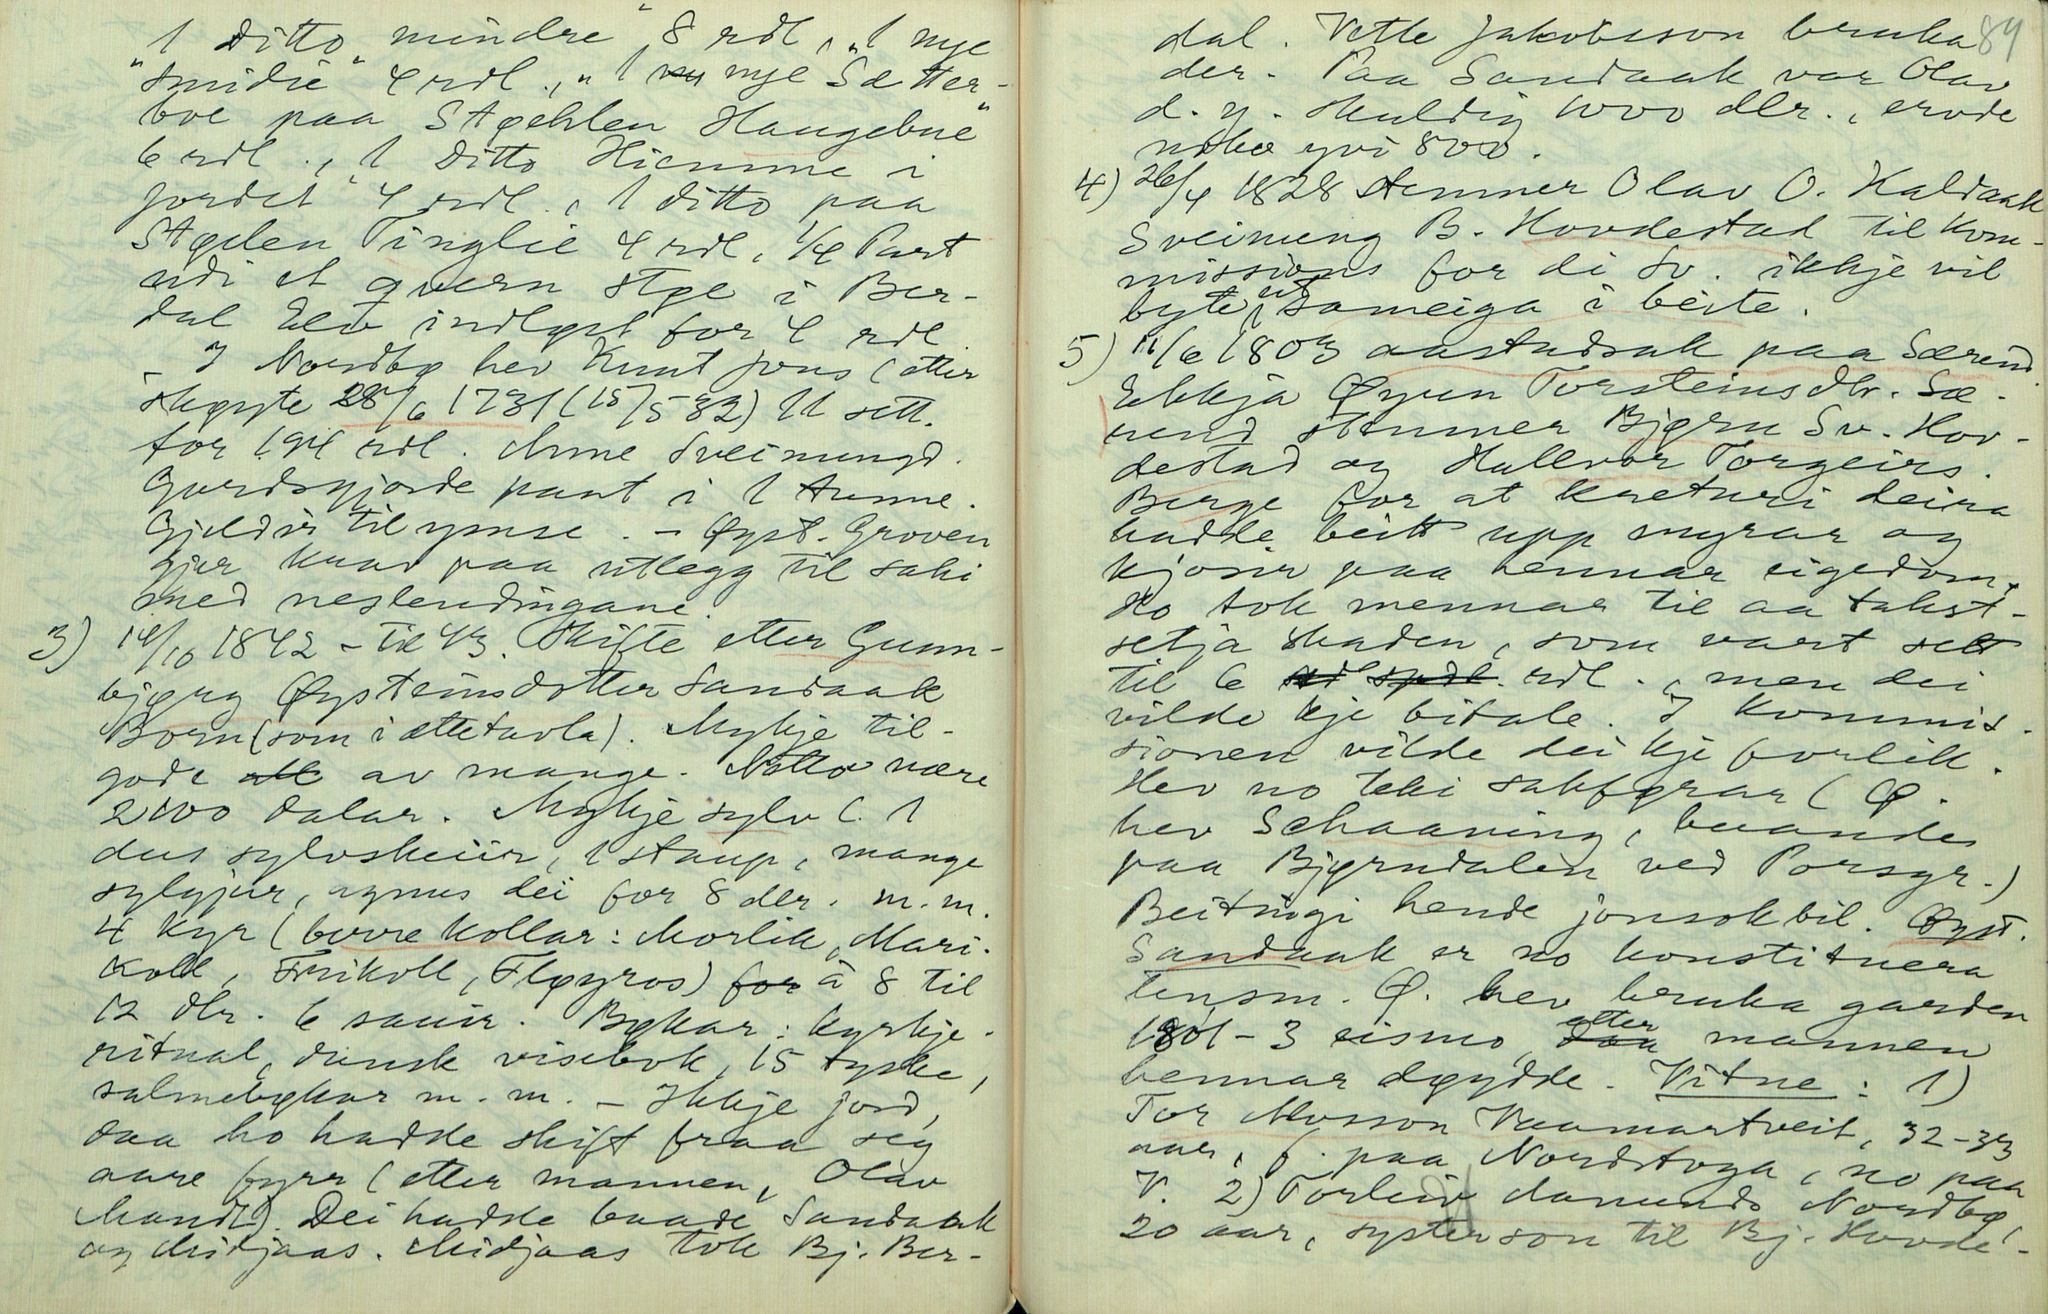 1 Ditto mindre" 8 rdl., "1 nye
"smidie" 4 rdl., "1 nye Sætter-
boe paa Støehlen Haugebue"
6 rdl., 1 Ditto Hiemme i
jordet" 4 rdl., 1 ditto paa
Støelen Tinglie 4 rdl., 1/4 Part
udi et qvern støe i Ber-
dal Elv indløst for 4 rdl.
- I Nordbø hev Knut Jons (etter
skøyte 28/6 1731 (15/5-32) 11 sett.
for 194 rdl. Anne Sveinungd.
Gardsgjorde pant i 1 tunne.
Gjeldir til ymse. - Øyst. Groven
gjer krav paa utlegg til saki
med neslendingane.
3) 14/10 1842 - til 43. Skifte etter Gunn-
bjørg Øysteinsdotter Sandaak
Born (som i ættetavla). Mykje til-
gode av mange. Netto være
2100 dalar. Mykje sylv (. 1
dus sylvskeiir, 1 staup, mange
sylgjur, m.m.
4 kyr (berre kollar: Morlik, Mari-
koll, Frikoll, Fløyros) for à 8 til
12 dlr. 6 sauir. Bøkar: kyrkje-
ritual, dansk visebok, 15 tyske,
salmebøkar m.m. - Ikkje jord,
daa ho hadde skift fraa seg
aare fyrr (etter mannen, Olav
Mandt). Dei hadde baade Sandaak
og Midjaas. Midjaas tok Bj. Ber-
84
dal. Vetle Jakobsson bruka
der. Paa Sandaak var Olav
d.y. skuldig 1000 dlr., erode
noko yvi 800.
4) 26/4 1828 stemner Olav O. Kaldaak
Sveinung B. Hovdestad til kom-
missions for di Sv. ikkje vil
byte ut sameiga i beite.
5) 11/6 1803 aastadsak paa Særend.
Ekkja Øyen Torsteinsdtr. Sæ-
rend stemner Bjørn Sv. Hov-
destad og Hallvor Torgeirs.
Berge for at kreturi deira
hadde beitt upp myrar og
kjosir paa hennar eigedom.
Ho tok mennar til aa takst-
setja skaden, som vart sett
til 6 rdl., men dei
vilde kje betale. I kommis-
sionen vilde dei kje forlik.
Hev no teki sakførar (Ø.
hev Schaaning, buande
paa Bjørndalen ved Porsgr.)
Beitingi hende jonsokbil. Øyst.
Sandaak er no konstituera
lensm. Ø. hev bruka garden
1801-3 eismo, etter mannen
hennar døydde. Vitne: 1)
Tor Mosson Vaamartveit, 32-33
aar, f. paa Nordstoga, no paa
V. 2) Torleiv Aamunds Nordbø,
20 aar, systerson til Bj. Hovde-